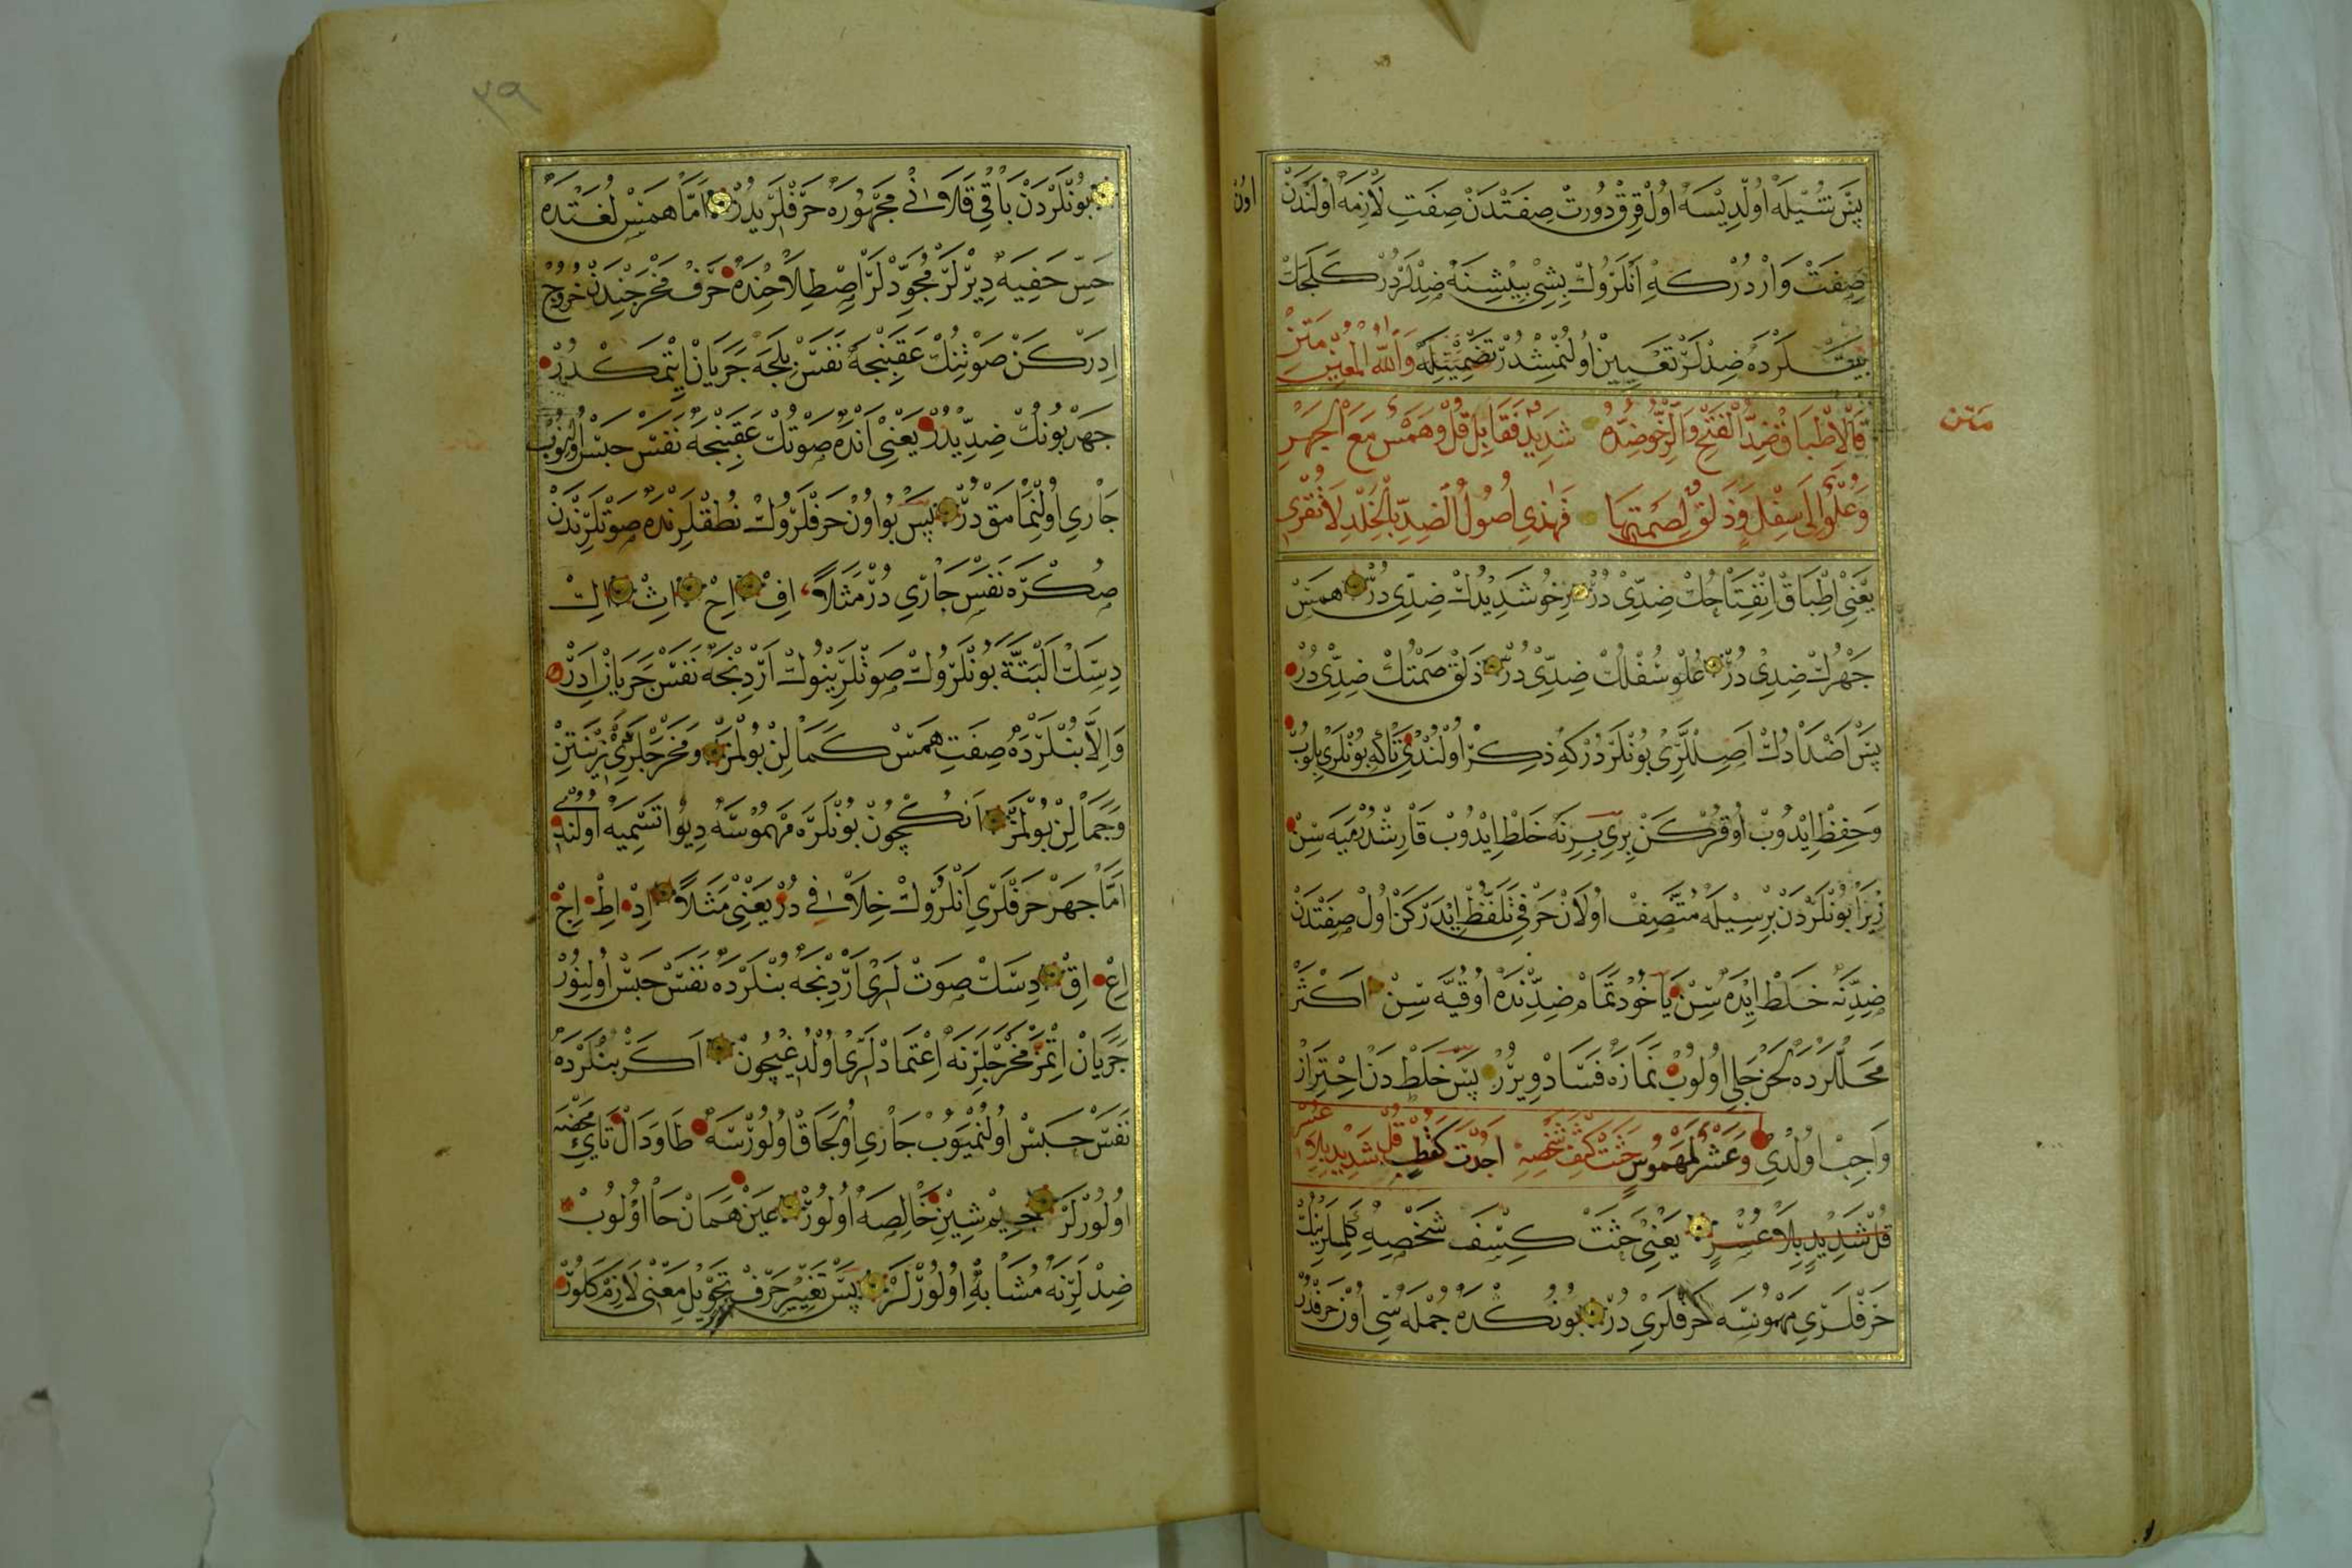 پس شیله اولدیسه اول قرق دورت صفتدن صفت لازمه اولندن
اون
صفت واردر که انلروك بشی بیشنه ضدلردر كلجك
بیتلرده ضدلر تعیین اولنمشدر تضمینله والله المعین متن
متن
فالاطباق ضد الفتح والرخو ضده شدید فقابل قل وهمس مع الجهر
وعلو الی سفل وذلق لصمتها فهذی اصول الضد بالخلد لا تقری
یعنی اطباق انفتاحك ضدی در رخو شدیدك ضدی در همس
جهرك ضدی در علو سفلك ضدی در ذلق صمتك ضدی در
پس اضدادك اصللری بونلردر که ذکر اولندی تاکه بونلری بلوب
وحفظ ایدوب اوقرکن بری برینه خلط ایدوب قارشدرمیه سن
زیرا بونلردن برسیله متصف اولان حرفی تلفظ ایدرکن اول صفتدن
ضدنه خلط ایده سن یا خود تمام ضدنده اوقیه سن اکثر
محللرده لحن جلی اولوب نمازه فساد ویرر پس خلط دن احتراز
واجب اولدی وعشر لمهموس حثت کسف شخصه اجدت کقطب قل شدید بلا عسر
قل شدید بلا عسر یعنی حثت کسف شخصه کلملرینك
حرفلری مهموسه حرفلری در بونکده جمله سی اون حرفدر
٣٩
بونلردن باقی قلانی مجهوره حرفلریدر اما همس لغتده
حس خفیه دیرلر مجودلر اصطلاحنده حرف مخرجندن خروج
ادرکن صوتنك عقبنجه نفس بلجه جریان ایتمکدر
جهر بونك ضدیدر یعنی انده صوتك عقبنجه نفس حبس اولنوب
جاری اولنمامقدر پس بو اون حرفلروك نطقلرنده صوتلرندن
صکره نفس جاری در مثلا اف اح اث اك
دسك البته بونلروك صوتلرینوك اردنجه نفس جریان ادر
والا بنلرده صفت همس کمالن بولمز ومخرجلری زینتن
وجمالن بولمز انکچون بونلره مهموسه دیو تسمیه اولنه
اما جهر حرفلری انلروك خلافی در یعنی مثلا اد اط اج
اع اق دسك صوتلری اردنجه بنلرده نفس حبس اولنور
جریان اتمز مخرجلرنه اعتمادلری اولدیغیچون اکر بنلرده
نفس حبس اولنمیوب جاری اولجاق اولورسه طا ودال تای محضه
اولورلر جیم شین خالصه اولور عین همان حا اولوب
ضدلرنه مشابه اولورلر پس تغییر حرف تحویل معنی لازم کلور